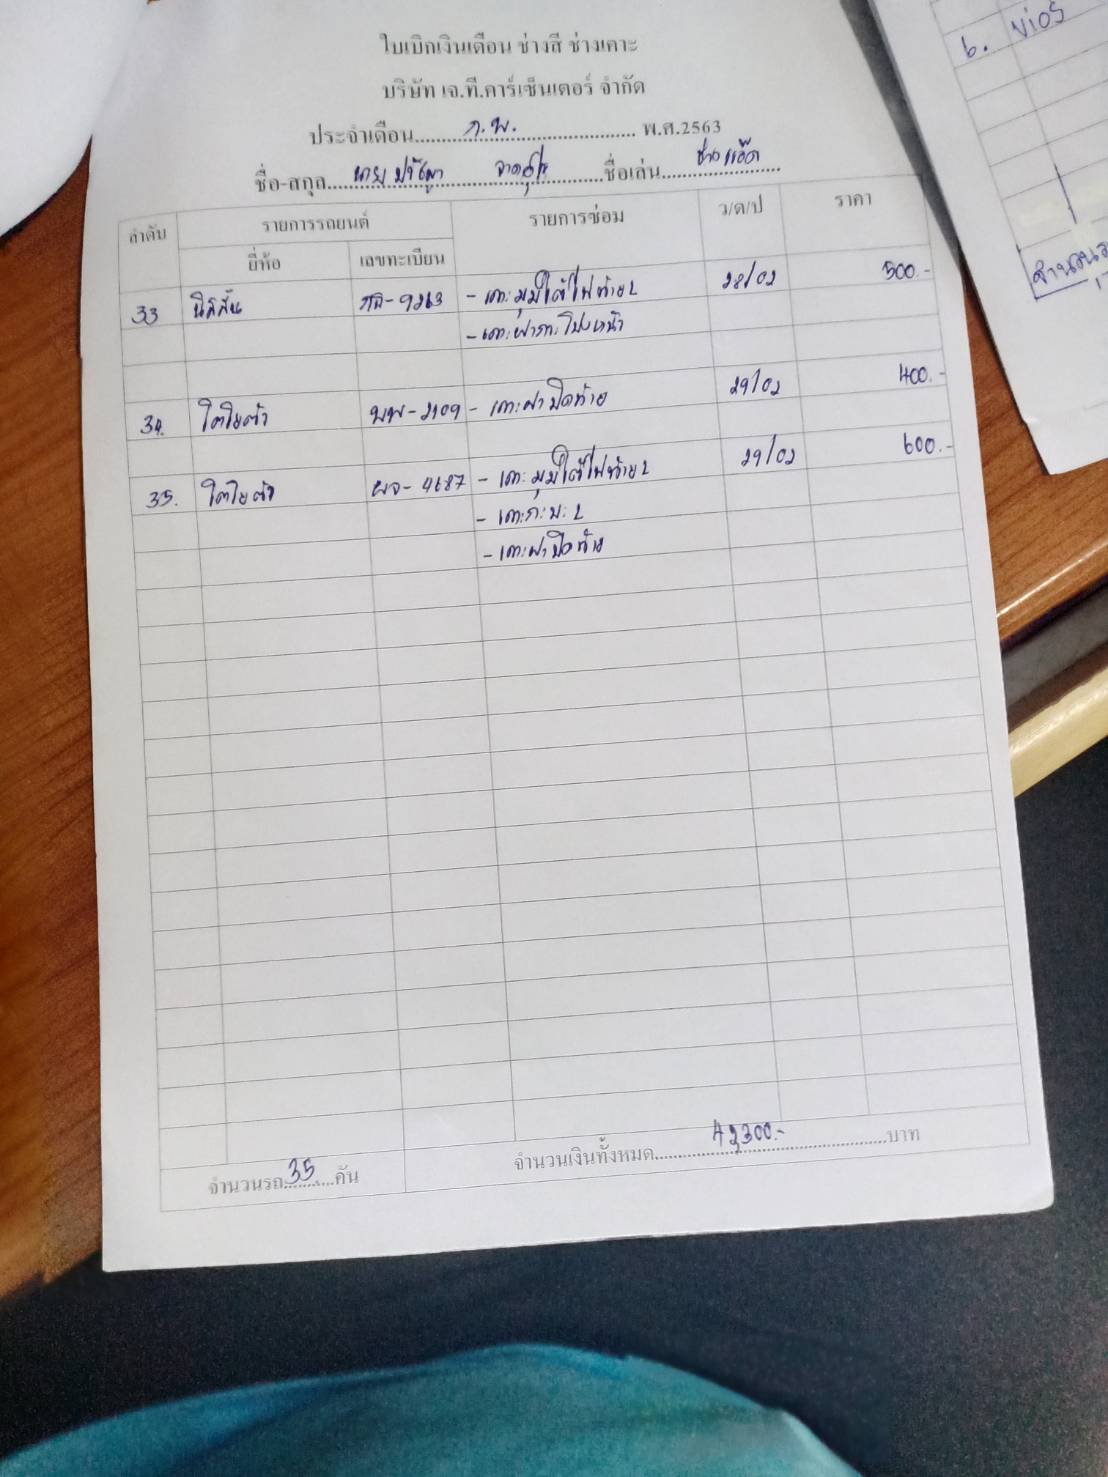 ใบเบิกเงินเดือน ช่างสี ช่างเคาะ
บริษัท เจ.ที.คาร์เซ็นเตอร์ จำกัด
ประจำเดือน.....ก.พ.....พ.ศ.2563
ชื่อ-สกุล.....นาย.....ชื่อเล่น.....ช่างแอ๊ด
ลำดับ รายการรถยนต์ รายการซ่อม ว/ด/ป ราคา
ยี่ห้อ เลขทะเบียน
33 นิสสัน 9263 - เคาะมุมใต้ไฟท้าย L 28/02 500.-
- เคาะฝากระโปงหน้า
34. โตโยต้า 2109 - เคาะฝาปิดท้าย 29/02 400.-
35. โตโยต้า 4687 - เคาะมุมใต้ไฟท้าย L 29/02 600.-
- เคาะกะบะ L
- เคาะฝาปิดท้าย
จำนวนรถ...35...คัน จำนวนเงินทั้งหมด.....บาท
6. Vios
จำนวนร